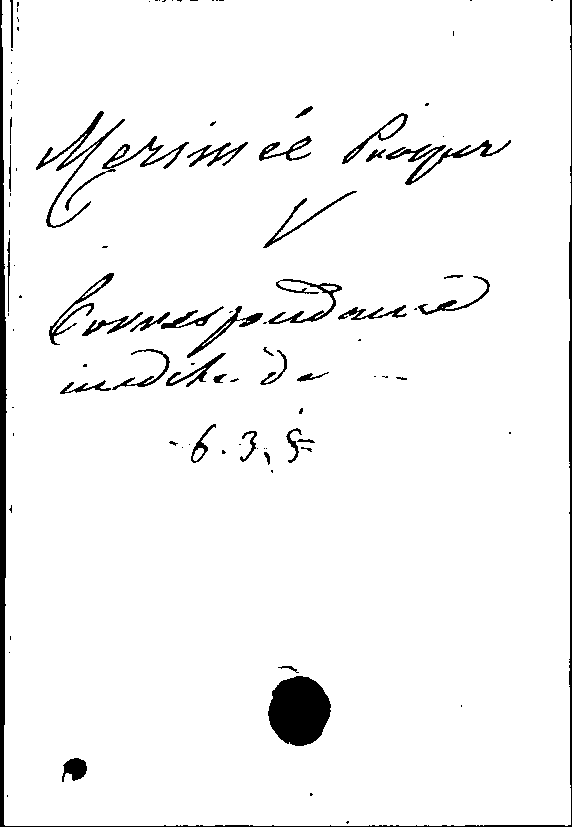 Merimée Prosper
V
Correspondance
inedite de —
6.3.5